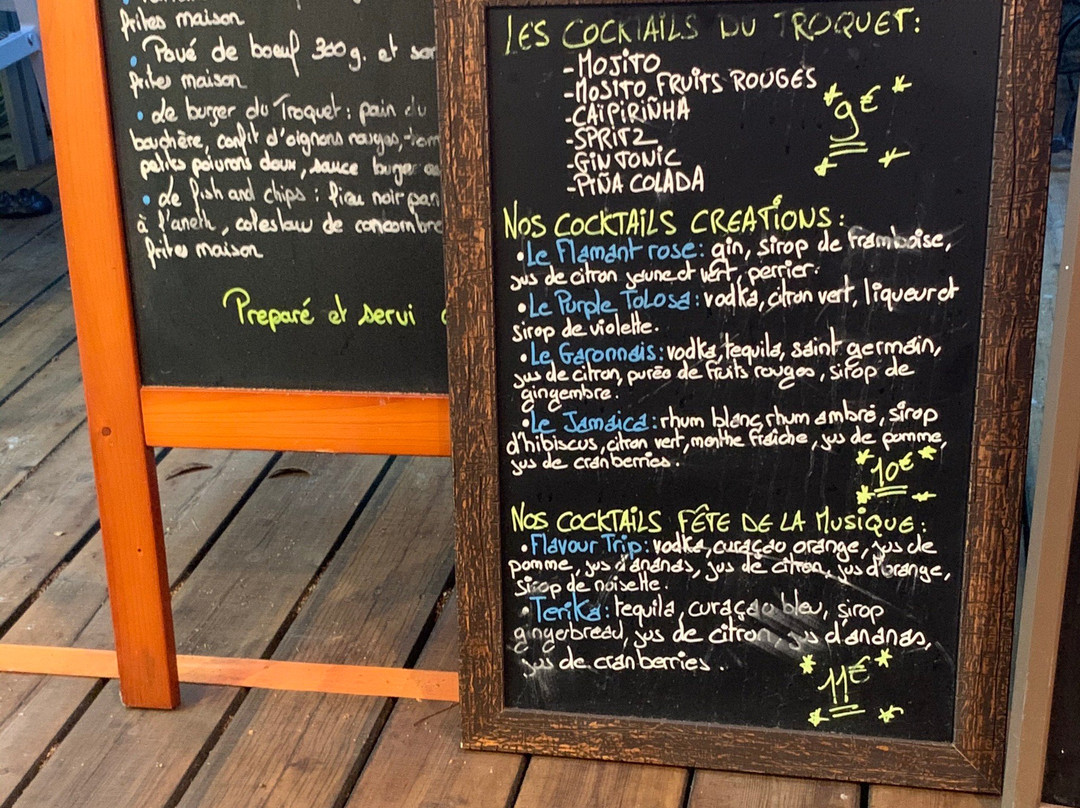 frites maison
• Pavé de boeuf 300g. et
frites maison
• Le burger du Troquet : pain du
bouchère, confit d'oignons rouges,
petits poivrons doux, sauce burger
• Le fish and chips : lieu noir pan
à l'aneth, coleslaw de concombre
frites maison
Preparé et servi
LES COCKTAILS DU TROQUET:
-MOJITO
-MOJITO FRUITS ROUGES
-CAÏPIRIÑHA
-SPRITZ
-GIN TONIC
-PIÑA COLADA
9€
NOS COCKTAILS CREATIONS:
•Le Flamant rose: gin, sirop de framboise,
jus de citron jaune et vert, perrier.
•Le Purple Tolosa: vodka, citron vert, liqueur et
sirop de violette.
•Le Garonnais: vodka, tequila, saint germain,
jus de citron, purée de fruits rouges, sirop de
gingembre.
•Le Jamaïca: rhum blanc, rhum ambré, sirop
d'hibiscus, citron vert, menthe fraîche, jus de pomme,
jus de cranberries.
10€
NOS COCKTAILS FÊTE DE LA MUSIQUE:
•Flavour Trip: vodka, curaçao orange, jus de
pomme, jus d'ananas, jus de citron, jus d'orange,
sirop de noisette.
•Terika: tequila, curaçao bleu, sirop
gingerbread, jus de citron, jus d'ananas,
jus de cranberries.
11€